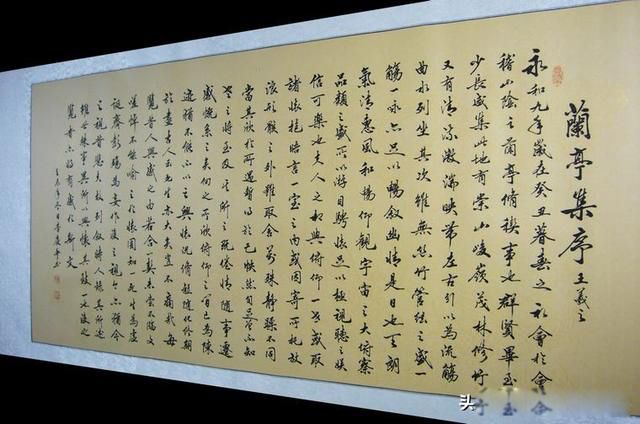 蘭亭集序 王羲之
永和九年歲在癸丑暮春之初會於會
稽山陰之蘭亭脩禊事也群賢畢至
少長咸集此地有崇山峻嶺茂林修竹
又有清流激湍映帶左右引以為流觴
曲水列坐其次雖無絲竹管絃之盛一
觴一詠亦足以暢敘幽情是日也天朗
氣清惠風和暢仰觀宇宙之大俯察
品類之盛所以游目騁懷足以極視聽之娛
信可樂也夫人之相與俯仰一世或取
諸懷抱晤言一室之內或因寄所托放
浪形骸之外雖取舍萬殊靜躁不同
當其欣於所遇暫得於己怏然自足曾不知
老之將至及其所之既倦情隨事遷
感慨系之矣向之所欣俯仰之間已為陳
迹猶不能不以之興懷況脩短隨化終期
於盡古人云死生亦大矣豈不痛哉每
覽昔人興感之由若合一契未嘗不臨文
嗟悼不能喻之於懷固知一死生為虛
誕齊彭殤為妄作後之視今亦猶今
之視昔悲夫故列敘時人錄其所述
雖世殊事異所以興懷其致一也後之
覽者亦將有感於斯文
头